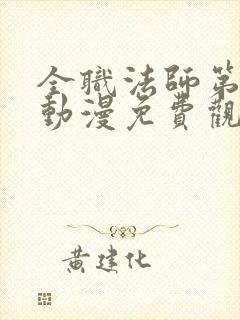 全職法師第
動漫免費觀
黃建化